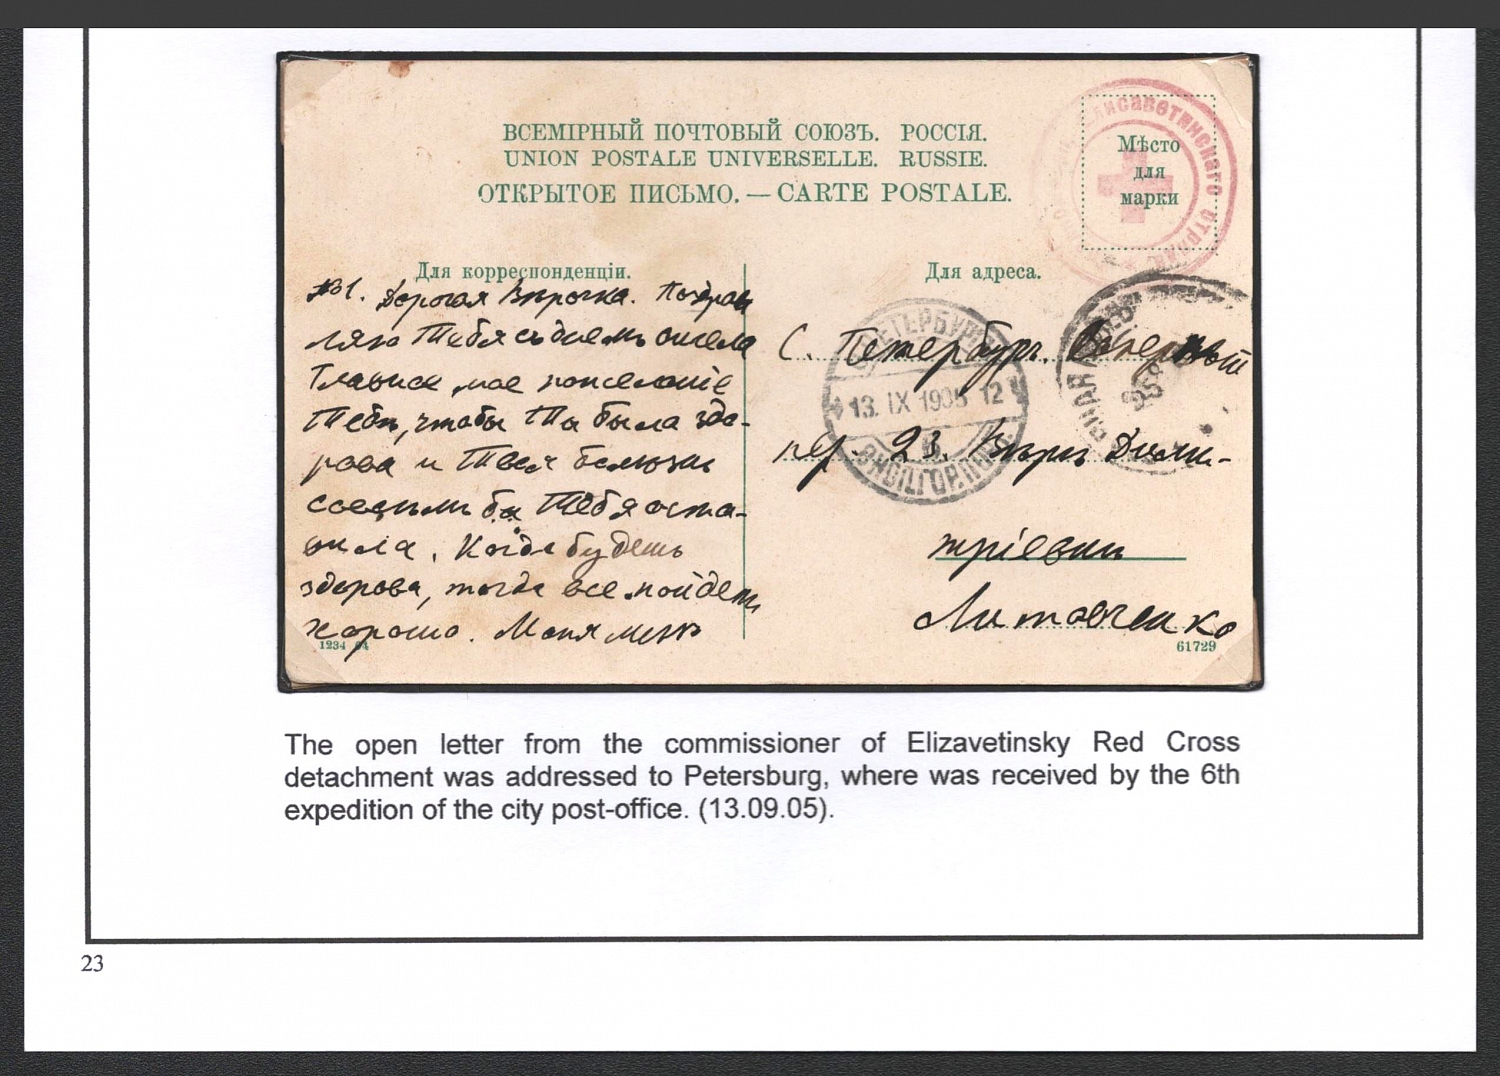 ВСЕМІРНЫЙ ПОЧТОВЫЙ СОЮЗЪ. РОССІЯ.
UNION POSTALE UNIVERSELLE. RUSSIE.
ОТКРЫТОЕ ПИСЬМО. — CARTE POSTALE.
Елисаветинскаго отряда
Мѣсто
для
марки
Для корреспонденціи.
№1. Дорогая Вѣрочка. Поздрав
ляю Тебя съ днемъ ангела
Главное мое пожеланіе
Тебѣ, чтобы Ты была здо-
рова и Твоя болѣзнь
совсѣмъ бы Тебя оста-
вила. Когда будешь
здорова, тогда все пойдетъ
хорошо.
1234 04
Для адреса.
С. Петербургъ.
пер. 23. Вѣрѣ Дими-
тріевнѣ
Литовченко
С.ПЕТЕРБУРГ
13. IX 1905 12
61729
The open letter from the commissioner of Elizavetinsky Red Cross
detachment was addressed to Petersburg, where was received by the 6th
expedition of the city post-office. (13.09.05).
23